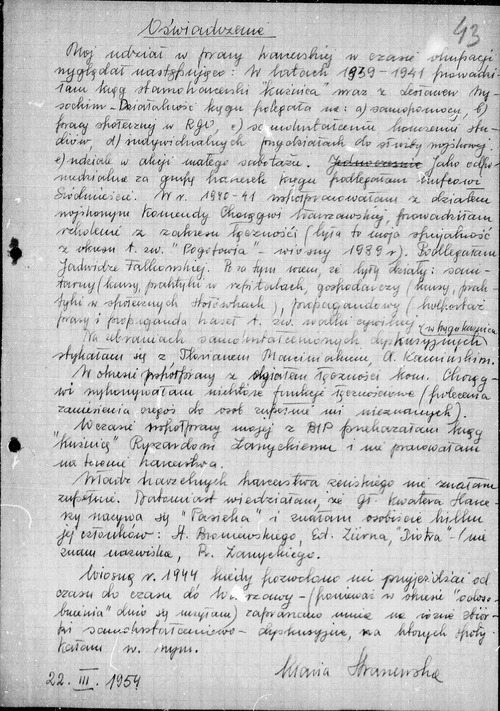 43
Oświadczenie
Mój udział w pracy harcerskiej w czasie okupacji
wyglądał następująco: W latach 1939-1941 prowadzi-
łam krąg staroharcerski "Kuźnica" wraz z Lesławem Wy-
sockim - Działalność kręgu polegała na: a) samopomocy, b)
pracy społecznej w RGO, c) samokształceniu kończeniu stu-
diów, d) indywidualnych przydziałach do służby wojskowej
e) udziale w akcji małego sabotażu. Jednocześnie Jako odpo-
wiedzialna za grupę harcerek kręgu podlegałam hufcowi
Śródmieście. W r. 1940-41 współpracowałam z działem
wojskowym Komendy Chorągwi Warszawskiej, prowadziłam
szkolenie z zakresu łączności (była to moja specjalność
z okresu t. zw. "Pogotowia" - wiosny 1939 r.) Podlegałam
Jadwidze Falkowskiej. Poza tym wiem, że były działy: sani-
tarny (kursy, praktyki w szpitalach, gospodarczy (kursy, prak-
tyki w społecznych stołówkach), propagandowy (kolportaż
prasy i propaganda haseł t. zw. walki cywilnej (w kręgu Kuźnica
Na zebraniach samokształceniowych dyskusyjnych
stykałam się z Florianem Marciniakiem, A. Kamińskim.
W okresie współpracy z działem łączności Kom. Chorąg-
wi wykonywałam niektóre funkcje łącznościowe (polecenia
zaniesienia czegoś do osób zupełnie mi nieznanych).
W czasie współpracy mojej z BIP przekazałam krąg
"Kuźnicę" Ryszardowi Zarzyckiemu i nie pracowałam
na terenie harcerstwa.
Władz naczelnych harcerstwa żeńskiego nie znałam
zupełnie. Natomiast wiedziałam, że Gł. Kwatera Harce-
rzy nazywa się "Pasieka" i znałam osobiście kilku
jej członków: St. Broniewskiego, Ed. Zürna, "Piotra" - (nie
znam nazwiska, R. Zarzyckiego.
Wiosną r. 1944 kiedy pozwolono mi przyjeżdżać od
czasu do czasu do Warszawy - (ponieważ w okresie "odosob-
nienia" dużo się uczyłam) zapraszano mnie na różne zbiór-
ki samokształceniowo - dyskusyjne, na których spoty-
kałam w. wym.
Maria Straszewska
22. III. 1954